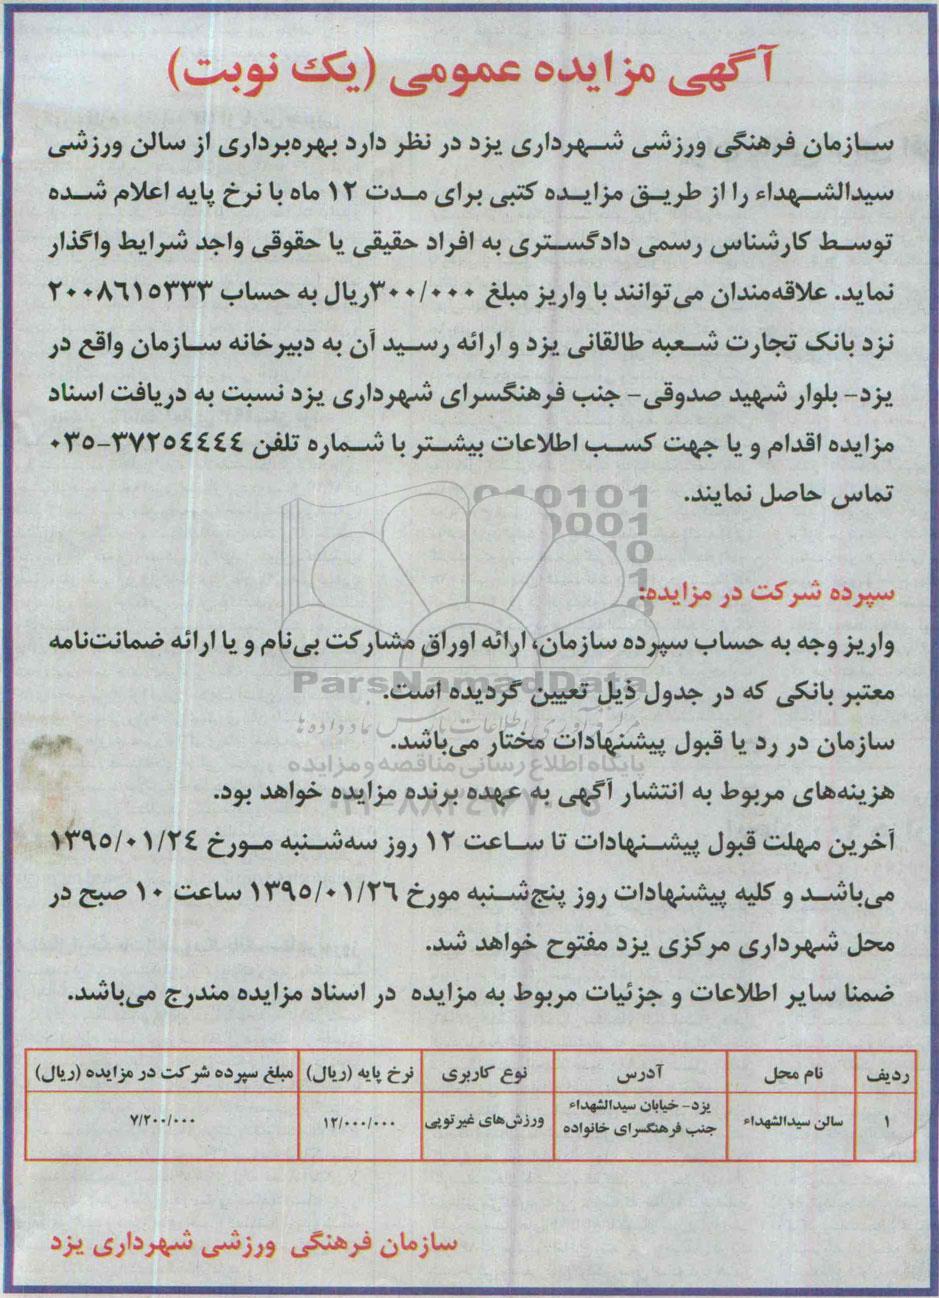 آگهی مزایده عمومی (یک نوبت)
سازمان فرهنگی ورزشی شهرداری یزد در نظر دارد بهره‌برداری از سالن ورزشی
سیدالشهداء را از طریق مزایده کتبی برای مدت ۱۲ ماه با نرخ پایه اعلام شده
توسط کارشناس رسمی دادگستری به افراد حقیقی یا حقوقی واجد شرایط واگذار
نماید. علاقه‌مندان می‌توانند با واریز مبلغ ۳۰۰/۰۰۰ریال به حساب ۲۰۰۸۶۱۵۳۳۳
نزد بانک تجارت شعبه طالقانی یزد و ارائه رسید آن به دبیرخانه سازمان واقع در
یزد- بلوار شهید صدوقی- جنب فرهنگسرای شهرداری یزد نسبت به دریافت اسناد
مزایده اقدام و یا جهت کسب اطلاعات بیشتر با شماره تلفن ۳۷۲۵٤٤٤٤-۰۳۵
تماس حاصل نمایند.
سپرده شرکت در مزایده:
واریز وجه به حساب سپرده سازمان، ارائه اوراق مشارکت بی‌نام و یا ارائه ضمانت‌نامه
معتبر بانکی که در جدول ذیل تعیین گردیده است.
ParsNamadData
سازمان در رد یا قبول پیشنهادات مختار می‌باشد.
پایگاه اطلاع رسانی مناقصه و مزایده
هزینه‌های مربوط به انتشار آگهی به عهده برنده مزایده خواهد بود.
آخرین مهلت قبول پیشنهادات تا ساعت ۱۲ روز سه‌شنبه مورخ ۱۳۹۵/۰۱/۲٤
می‌باشد و کلیه پیشنهادات روز پنج‌شنبه مورخ ۱۳۹۵/۰۱/۲۶ ساعت ۱۰ صبح در
محل شهرداری مرکزی یزد مفتوح خواهد شد.
ضمنا سایر اطلاعات و جزئیات مربوط به مزایده در اسناد مزایده مندرج می‌باشد.
ردیف نام محل آدرس نوع کاربری نرخ پایه (ریال) مبلغ سپرده شرکت در مزایده (ریال)
۱ سالن سیدالشهداء یزد- خیابان سیدالشهداء جنب فرهنگسرای خانواده ورزش‌های غیرتوپی ۱۲/۰۰۰/۰۰۰ ۷/۲۰۰/۰۰۰
سازمان فرهنگی ورزشی شهرداری یزد